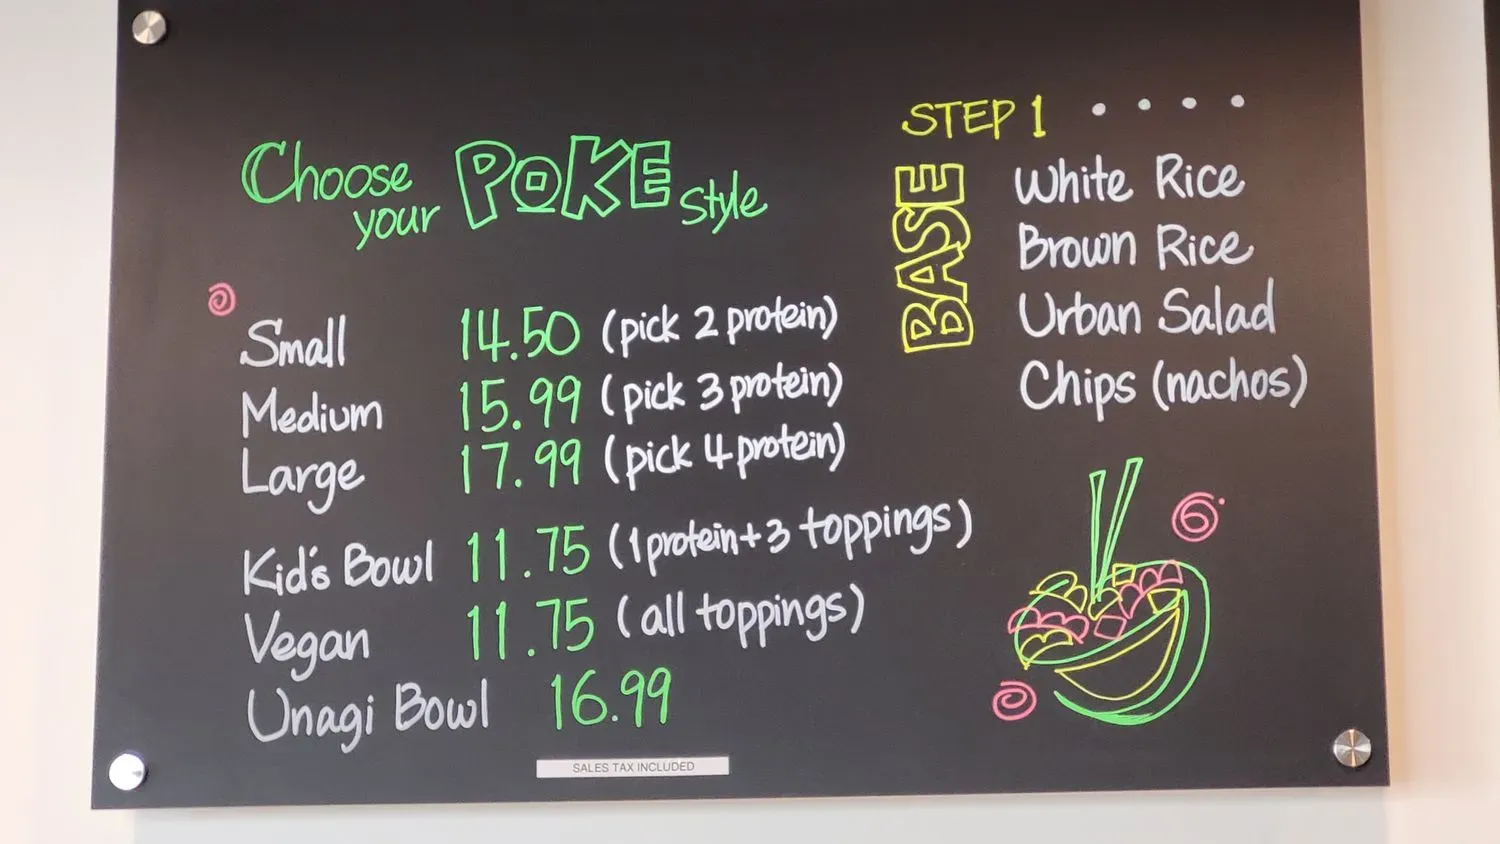 Choose your POKE style
Small 14.50 (pick 2 protein)
Medium 15.99 (pick 3 protein)
Large 17.99 (pick 4 protein)
Kid's Bowl 11.75 (1 protein + 3 toppings)
Vegan 11.75 (all toppings)
Unagi Bowl 16.99
SALES TAX INCLUDED
STEP 1 . . . .
BASE
White Rice
Brown Rice
Urban Salad
Chips (nachos)